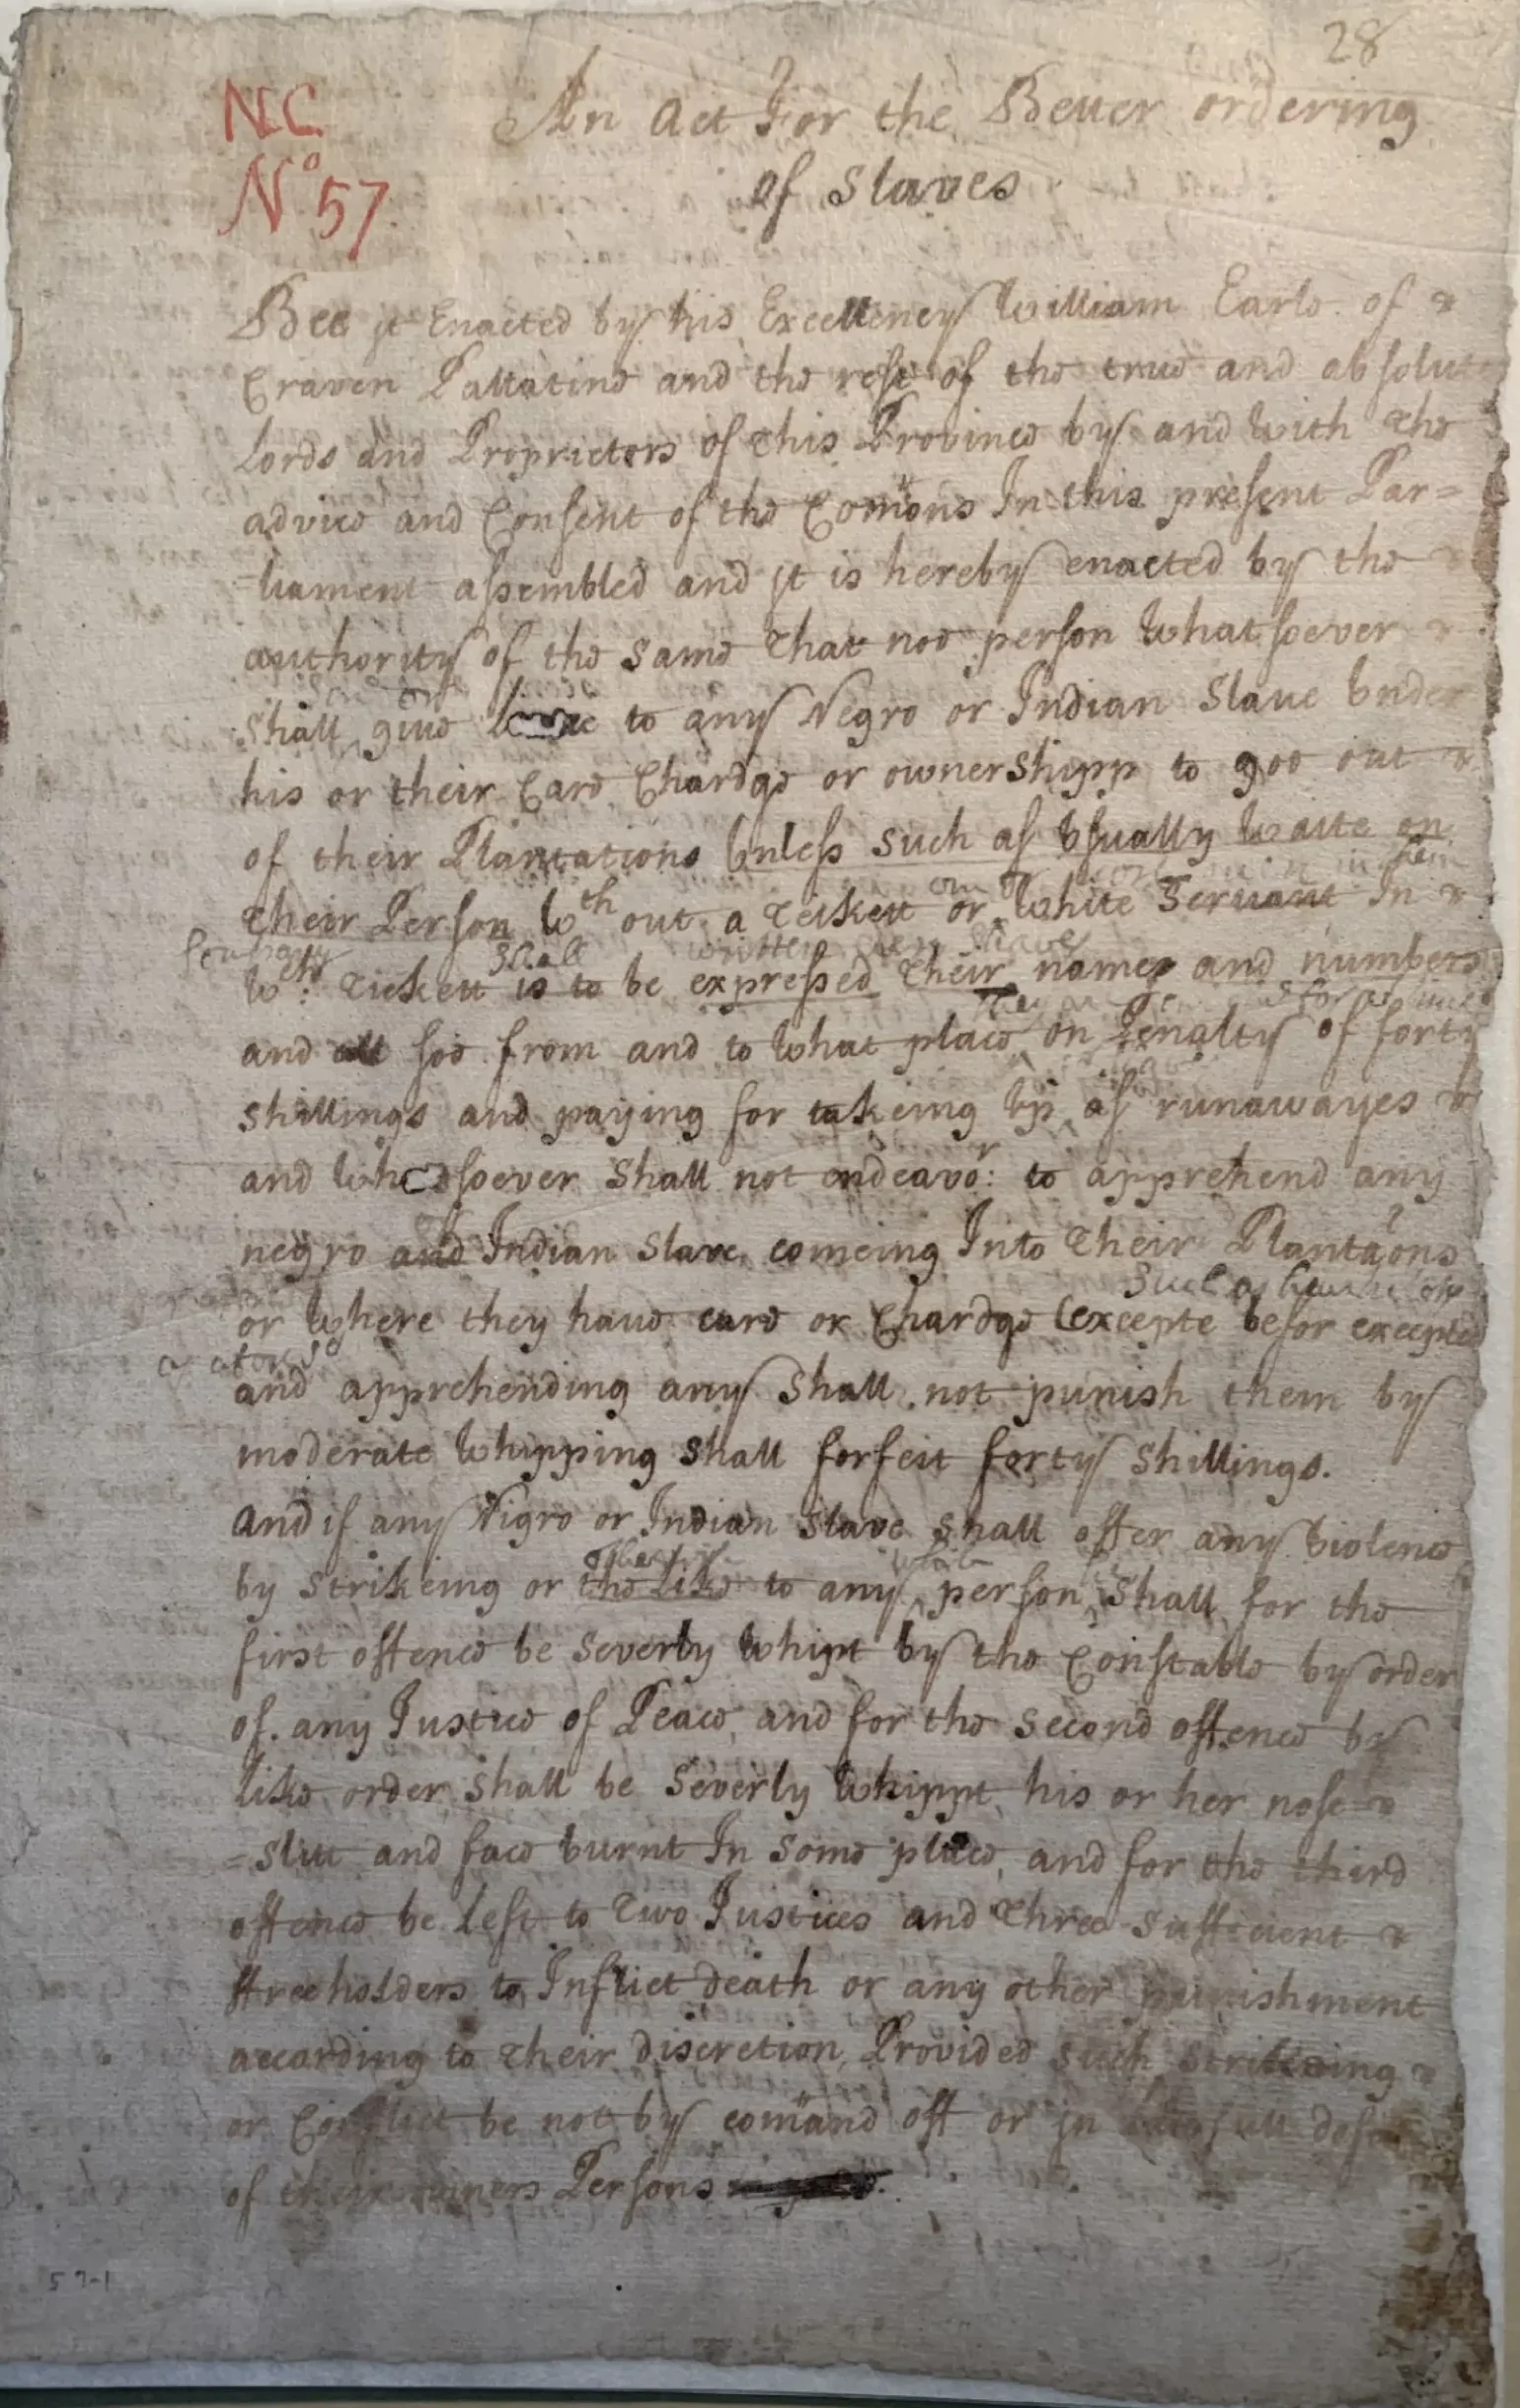 28
N.C.
An Act For the Better ordering
No 57.
of Slaves
Bee jt Enacted by his Excellency William Earle of
Craven Pallatine and the rest of the true and absolute
Lords and Proprietors of this Province by and with the
advice and Consent of the Comons In this present Par=
=liament assembled and jt is hereby enacted by the
authority of the same That noe person Whatsoever
shall give leave to any Negro or Indian Slave Vnder
his or their Care Chardge or ownershipp to goe out
of their Plantations Vnless such as Vsually Waite on
their Person Wth out a Tickett or White Servant In
shall written
Wch: Tickett is to be expressed their names and numbers
and all soe from and to What place on Penalty of forty
shillings and paying for takeing Vp as runawayes
and Whosoever shall not endeavor: to apprehend any
negro and Indian Slave comeing Into their Plantations
or Where they have care or Chardge (excepte befor excepted
and apprehending any shall not punish them by
moderate Whipping shall forfeit forty shillings.
And if any Nigro or Indian Slave shall offer any Violence
by strikeing or the like to any person shall for the
first offence be severly Whipt by the Constable by order
of any Justice of Peace, and for the second offence by
like order shall be severly Whippt his or her nose
=slitt and face burnt In some place, and for the third
offence be left to Two Justices and Three sufficient
ffreeholders to Inflict death or any other punishment
according to their discretion, Provided such strikeing
or Conflict be not by comand off or in
of their owners Persons
57-1